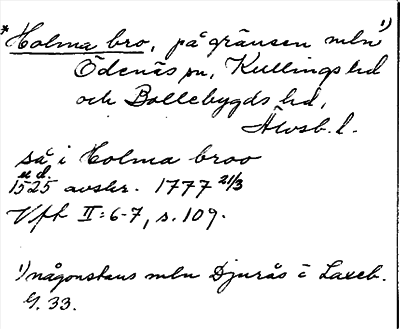 * Holma bro, på gränsen mln 1)
Ödenäs sn, Kullings hd
och Bollebygds hd,
Älvsb. l.
så i Holma broo
u d.
1525 avskr. 1777 21/3
Vfh II: 6-7, s. 109.
1) någonstans mln Djurås i Laxeb.
G. 33.